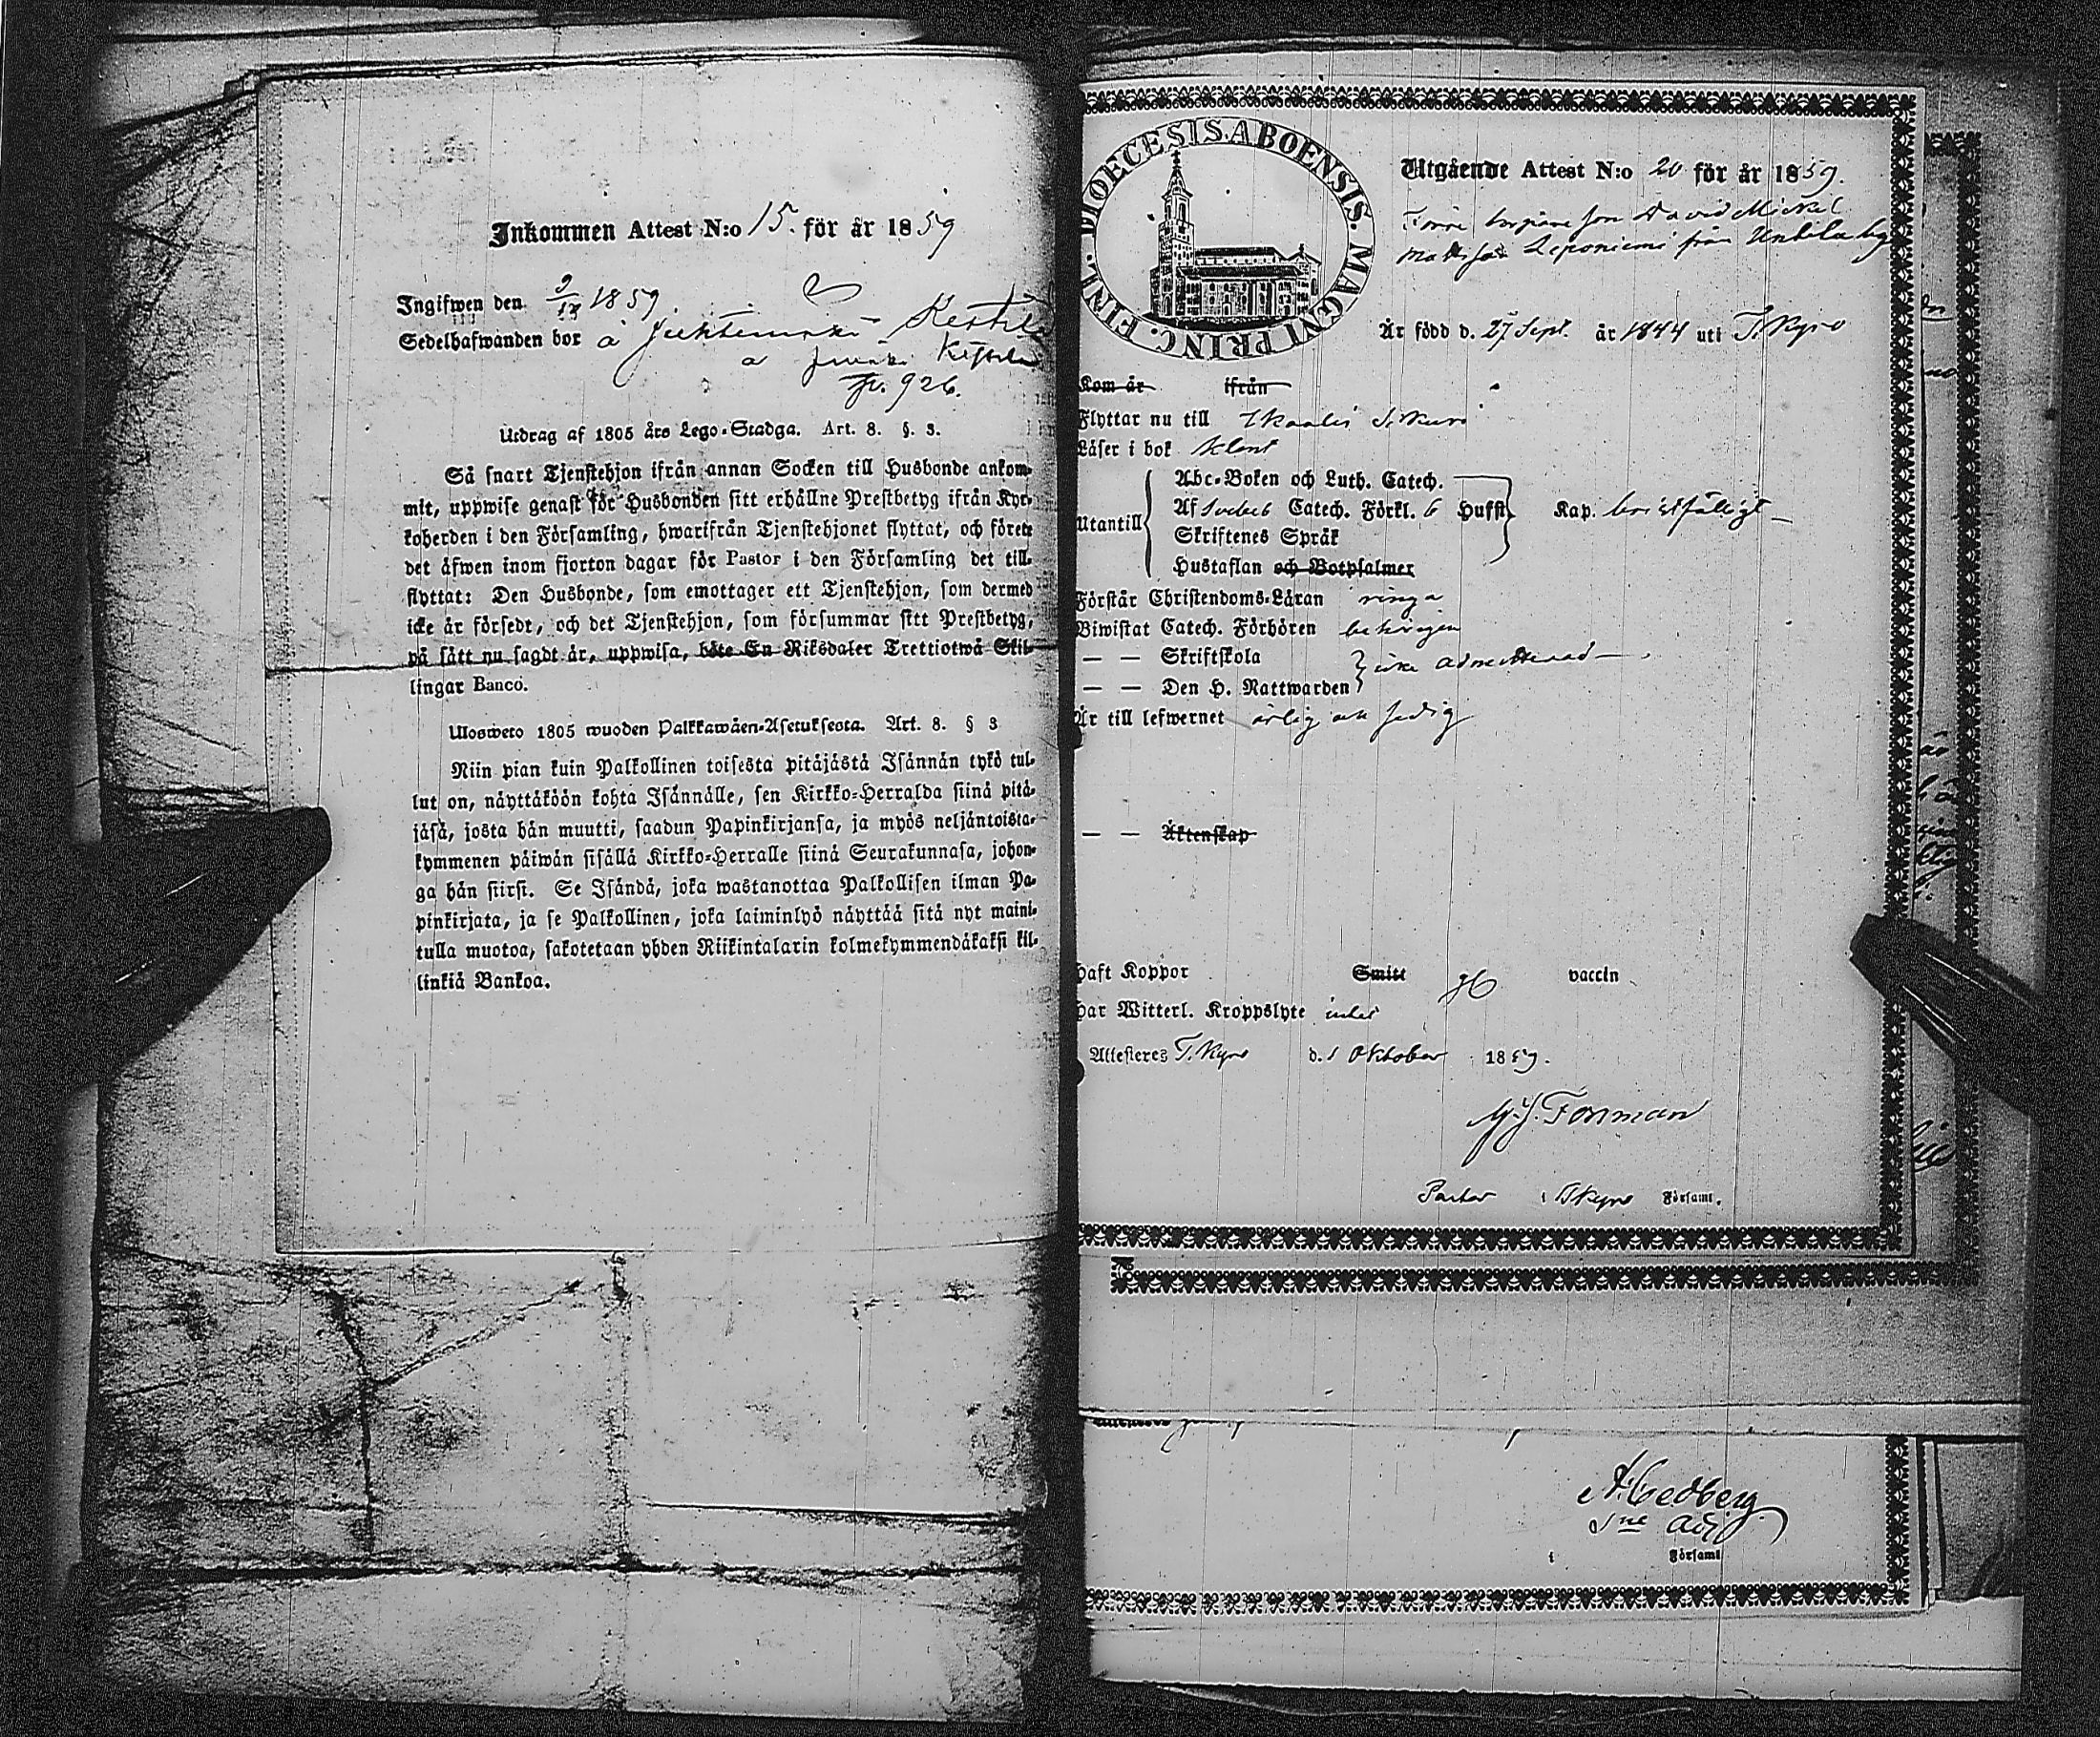 Inkommen Attest N:o 15. för år 1859
Ingifwen den 9/12 1859.
Sedelhafwanden bor å
a
fr. 926.
Utdrag af 1805 års Lego-Stadga. Art. 8. §. 3.
Så snart Tjenstehjon ifrån annan Socken till Husbonde ankom-
mit, uppwise genast för Husbonden sitt erhållne Prestbetyg ifrån Kyr-
koherden i den Församling, hwarifrån Tjenstehjonet flyttat, och förete
det äfwen inom fjorton dagar för Pastor i den Församling det till-
flyttat: Den Husbonde, som emottager ett Tjenstehjon, som dermed
icke är försedt, och det Tjenstehjon, som försummar sitt Prestbetyg,
på sätt nu sagdt är, uppwisa, böte En Riksdaler Trettiotwå Skil-
lingar Banco.
Ulosweto 1805 wuoden Palkkawäen-Asetuksesta. Art. 8. § 3
Niin pian kuin Palkollinen toisesta pitäjästä Isännän tykö tul-
lut on, näyttäköön kohta Isännälle, sen Kirkko-Herralda siinä pitä-
jäsä, josta hän muutti, saadun Papinkirjansa, ja myös neljäntoista-
kymmenen päiwän sisällä Kirkko-Herralle siinä Seurakunnasa, johon-
ga hän siirsi. Se Isändä, joka wastanottaa Palkollisen ilman Pa-
pinkirjata, ja se Palkollinen, joka laiminlyö näyttää sitä nyt maini-
tulla muotoa, sakotetaan yhden Riikintalarin kolmekymmendäkaksi kil-
linkiä Bankoa.
DIOECESIS.ABOENSIS. MAGNI PRINC. FINL.
Utgående Attest N:o 20 för år 1859.
son David Mickel
Leponiemi från
Är född d. 27 Sept. år 1844 uti T. Kyro
Kom år ifrån
Flyttar nu till Ikalis
Läser i bok klent
Abc-Boken och Luth. Catech.
Utantill Af Svebes Catech. Förkl. 6 Hufst. Kap. bristfälligt
Skriftenes Språk
Hustaflan och Botpsalmer
Förstår Christendoms-Läran ringa
Biwistat Catech. Förhören behörigen
— — Skriftskola
icke admitterad
— — Den H. Nattwarden
Är till lefwernet ärlig och sedig
— — Äktenskap
haft Koppor Smitt vaccin
har Witterl. Kroppslyte intet
Attesteres T. Kyro d. 1 Oktober 1859.
Forsman
Pastor i T Kyro Församl.
A. Cedberg
Adj
i Församl